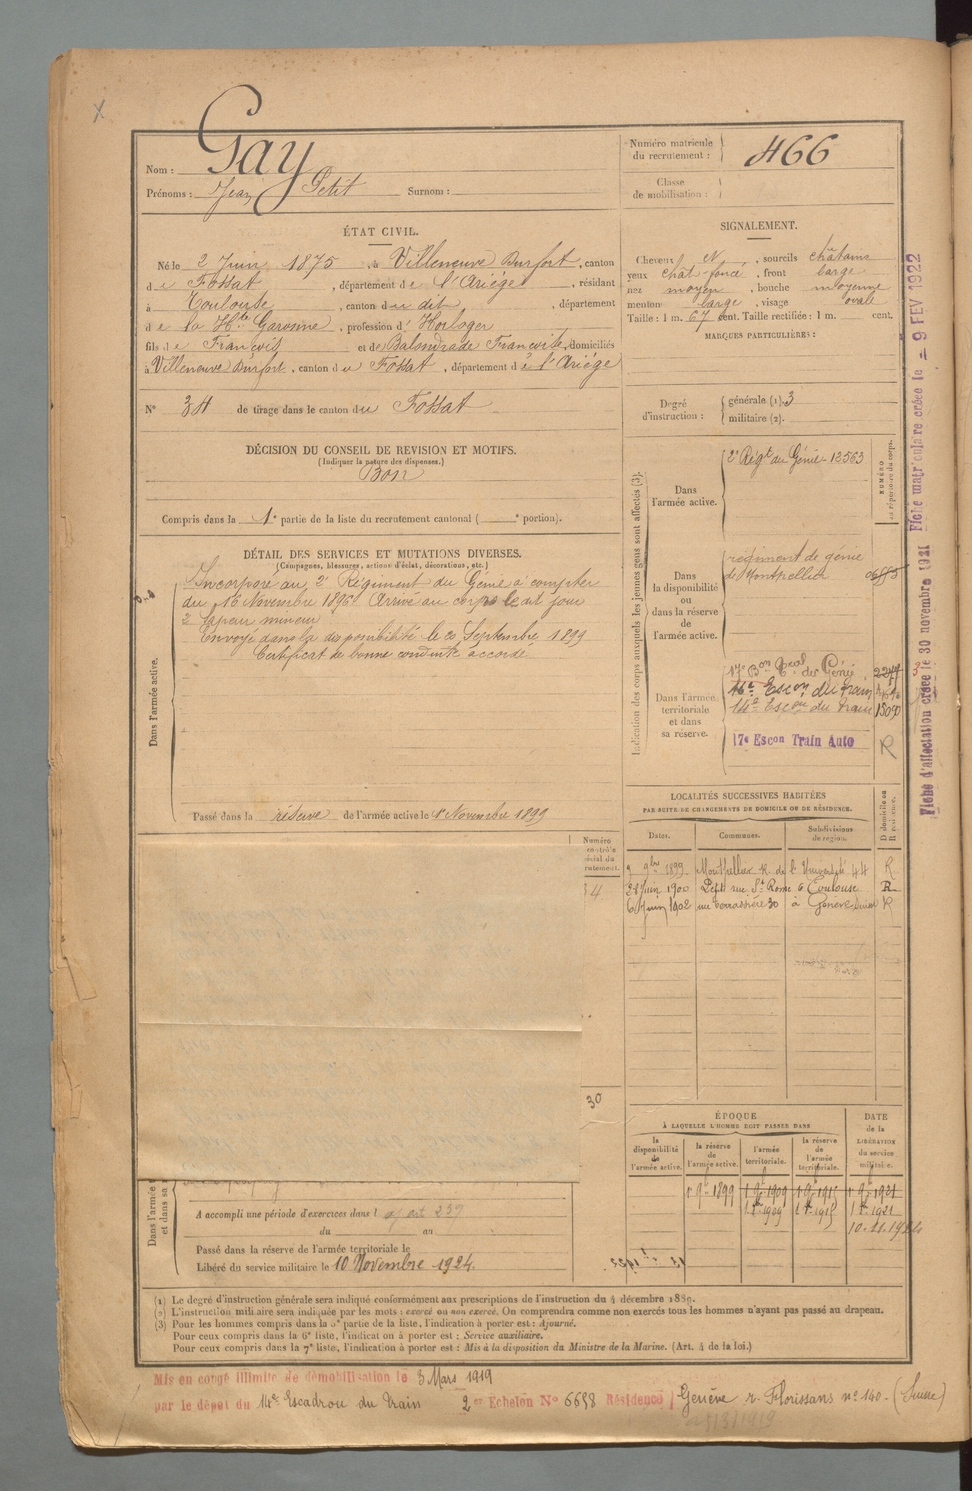 Nom : Gay
Prénoms : Jean Petit Surnom :
Numéro matricule du recrutement : 466
Classe de mobilisation :
ÉTAT CIVIL.
Né le 2 Juin 1875, à Villeneuve Durfort, canton
de Fossat, département de l'Ariége, résidant
à Toulouse, canton du dit, département
de la Hte Garonne, profession d' Horloger
fils de François et de Balondrade Francoise, domiciliés
à Villeneuve Durfort, canton du Fossat, département de l'Ariége
N° 34 de tirage dans le canton du Fossat
DÉCISION DU CONSEIL DE REVISION ET MOTIFS.
(Indiquer la nature des dispenses.)
Bon
Compris dans la 1e partie de la liste du recrutement cantonal ( e portion).
DÉTAIL DES SERVICES ET MUTATIONS DIVERSES.
(Campagnes, blessures, actions d'éclat, décorations, etc.)
Dans l'armée active.
Incorporé au 2e Régiment du Génie à compter
du 16 Novembre 1896. Arrivé au corps le dit jour
2e Sapeur mineur
Envoyé dans la disponibilité le 20 Septembre 1899
Certificat de bonne conduite accordé
Passé dans la réserve de l'armée active le 1er Novembre 1899
SIGNALEMENT.
Cheveux N, sourcils châtains
yeux chat foncé, front large
nez moyen, bouche moyenne
menton large, visage ovale
Taille : 1 m. 67 cent. Taille rectifiée : 1 m. cent.
MARQUES PARTICULIÈRES :
Degré d'instruction : générale (1). 3
militaire (2).
Indication des corps auxquels les jeunes gens sont affectés (3).
NUMÉRO au répertoire du corps.
Dans l'armée active.
2e Régt du Génie 12563
Dans la disponibilité ou dans la réserve de l'armée active.
régiment de génie
de Montpellier
Dans l'armée territoriale et dans sa réserve.
17e Bon Tral du Génie 2277
16e Escon du Train
14e Escon du Train 1809
17e Escon Train Auto R
LOCALITÉS SUCCESSIVES HABITÉES
PAR SUITE DE CHANGEMENTS DE DOMICILE OU DE RÉSIDENCE.
Dates. Communes. Subdivisions de région. D domicile ou R résidence.
9 9bre 1899 Montpellier R. de l'Université 44 R
21 Juin 1900 rue St Rome 6 Toulouse R
6 Juin 1902 rue Terrassière 30 à Genève Suisse R
Numéro
34
30
ÉPOQUE
À LAQUELLE L'HOMME DOIT PASSER DANS
la disponibilité de l'armée active. la réserve de l'armée active. l'armée territoriale. la réserve de l'armée territoriale. DATE de la LIBÉRATION du service militaire.
1er 9bre 1899 1er 9bre 1909 1er 9bre 1915 1er 9bre 1921
1er 1909 1er 1915 1er 1921
10.11.1924
A accompli une période d'exercices dans l
du au
Passé dans la réserve de l'armée territoriale le
Libéré du service militaire le 10 Novembre 1924
(1) Le degré d'instruction générale sera indiqué conformément aux prescriptions de l'instruction du 4 décembre 1889.
(2) L'instruction militaire sera indiquée par les mots : exercé ou non exercé. On comprendra comme non exercés tous les hommes n'ayant pas passé au drapeau.
(3) Pour les hommes compris dans la 5e partie de la liste, l'indication à porter est : Ajourné.
Pour ceux compris dans la 6e liste, l'indication à porter est : Service auxiliaire.
Pour ceux compris dans la 7e liste, l'indication à porter est : Mis à la disposition du Ministre de la Marine. (Art. 4 de la loi.)
Mis en congé illimité de démobilisation le 3 Mars 1919
par le dépôt du 14e Escadron du Train 2er Echelon N° 6658 Résidence Genève r. Florissans n° 140 - (Suisse)
Fiche d'affectation créée le 30 novembre 1921 Fiche matriculaire créée le = 9 FEV 1922